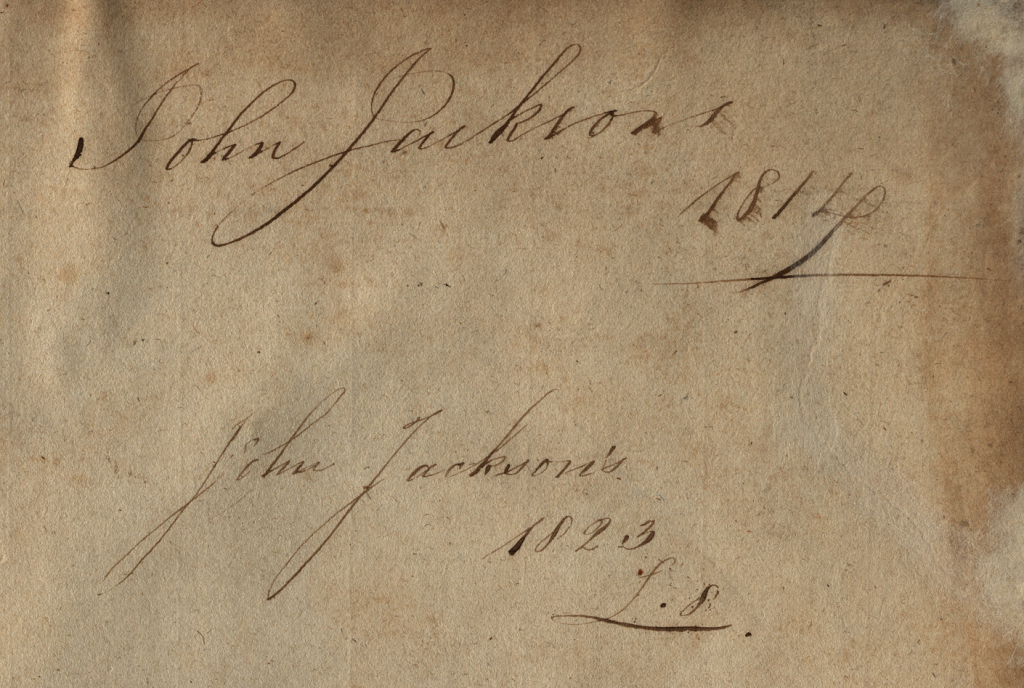 John Jacksons
1814
John Jackson's
1823
L. 8